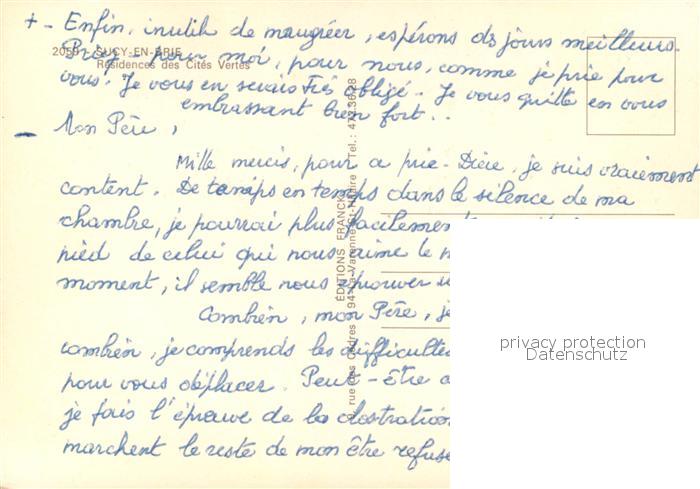 + - Enfin, inutile de maugréer, espérons ds jours meilleurs.
2059 - SUCY-EN-BRIE
Priez - pour moi, pour nous, comme je prie pour
Résidences des Cités Vertes
vous. Je vous en serais très obligé. Je vous quitte en vous
embrassant bien fort...
Mon Père,
Mille mercis, pour ce prie-Dieu, je suis vraiment
content. De temps en temps dans le silence de ma
chambre, je pourrai plus facilement
pied de celui qui nous aime le
moment, il semble nous éprouver
Combien, mon Père, je
combien, je comprends les difficultés
pour vous déplacer. Peut-être
je fais l'épreuve de la
marchent le reste de mon être refuse
ÉDITIONS FRANCK
rue des Cèdres 94-La-Varenne-St-Hilaire Tel.:
privacy protection
Datenschutz